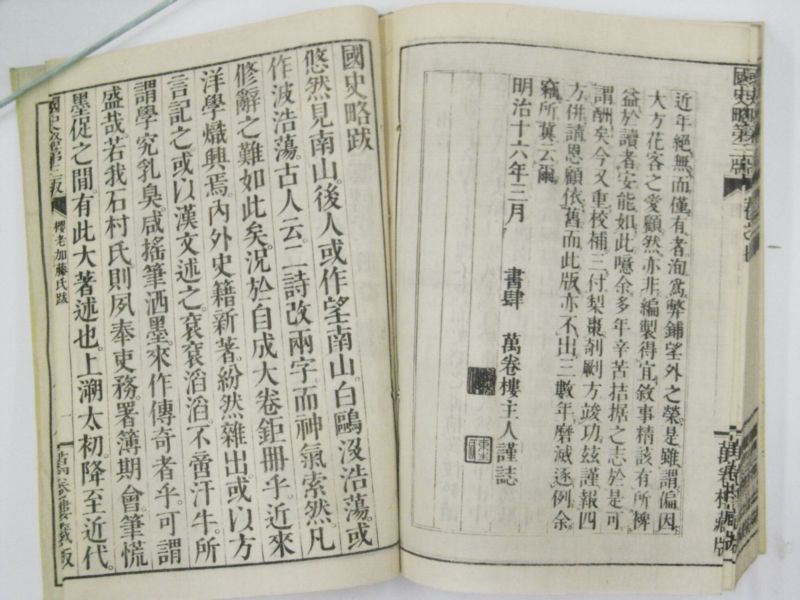 近年絶無而僅有者洵爲弊鋪望外之榮是雖謂偏因
大方花客之愛顧然亦非編製得宜敘事精該有所裨
益於讀者安能如此噫余多年辛苦拮据之志於是可
謂酬矣今又重校補三付梨棗剞劂方竣功玆謹報四
方併請恩顧依舊而此版亦不出三數年磨滅逐例余
竊所冀云爾
明治十六年三月
書肆 萬卷樓主人謹誌
國史略第三版
萬卷樓藏版
國史略跋
悠然見南山。後人或作望南山。白鷗沒浩蕩。或
作波浩蕩。古人云。二詩改兩字而神氣索然。凡
修辭之難如此矣。況於自成大卷鉅冊乎。近來
洋學熾興焉。內外史籍新著。紛然雜出。或以方
言記之。或以漢文述之。袞袞滔滔。不啻汗牛。所
謂學究乳臭。咸搖筆洒墨。來作傳奇者乎。可謂
盛哉。若我石村氏。則夙奉吏務。署簿期會。筆慌
墨促之間。有此大著述也。上溯太初。降至近代。
國史略第三版
櫻老加藤氏跋
一
萬卷樓藏版